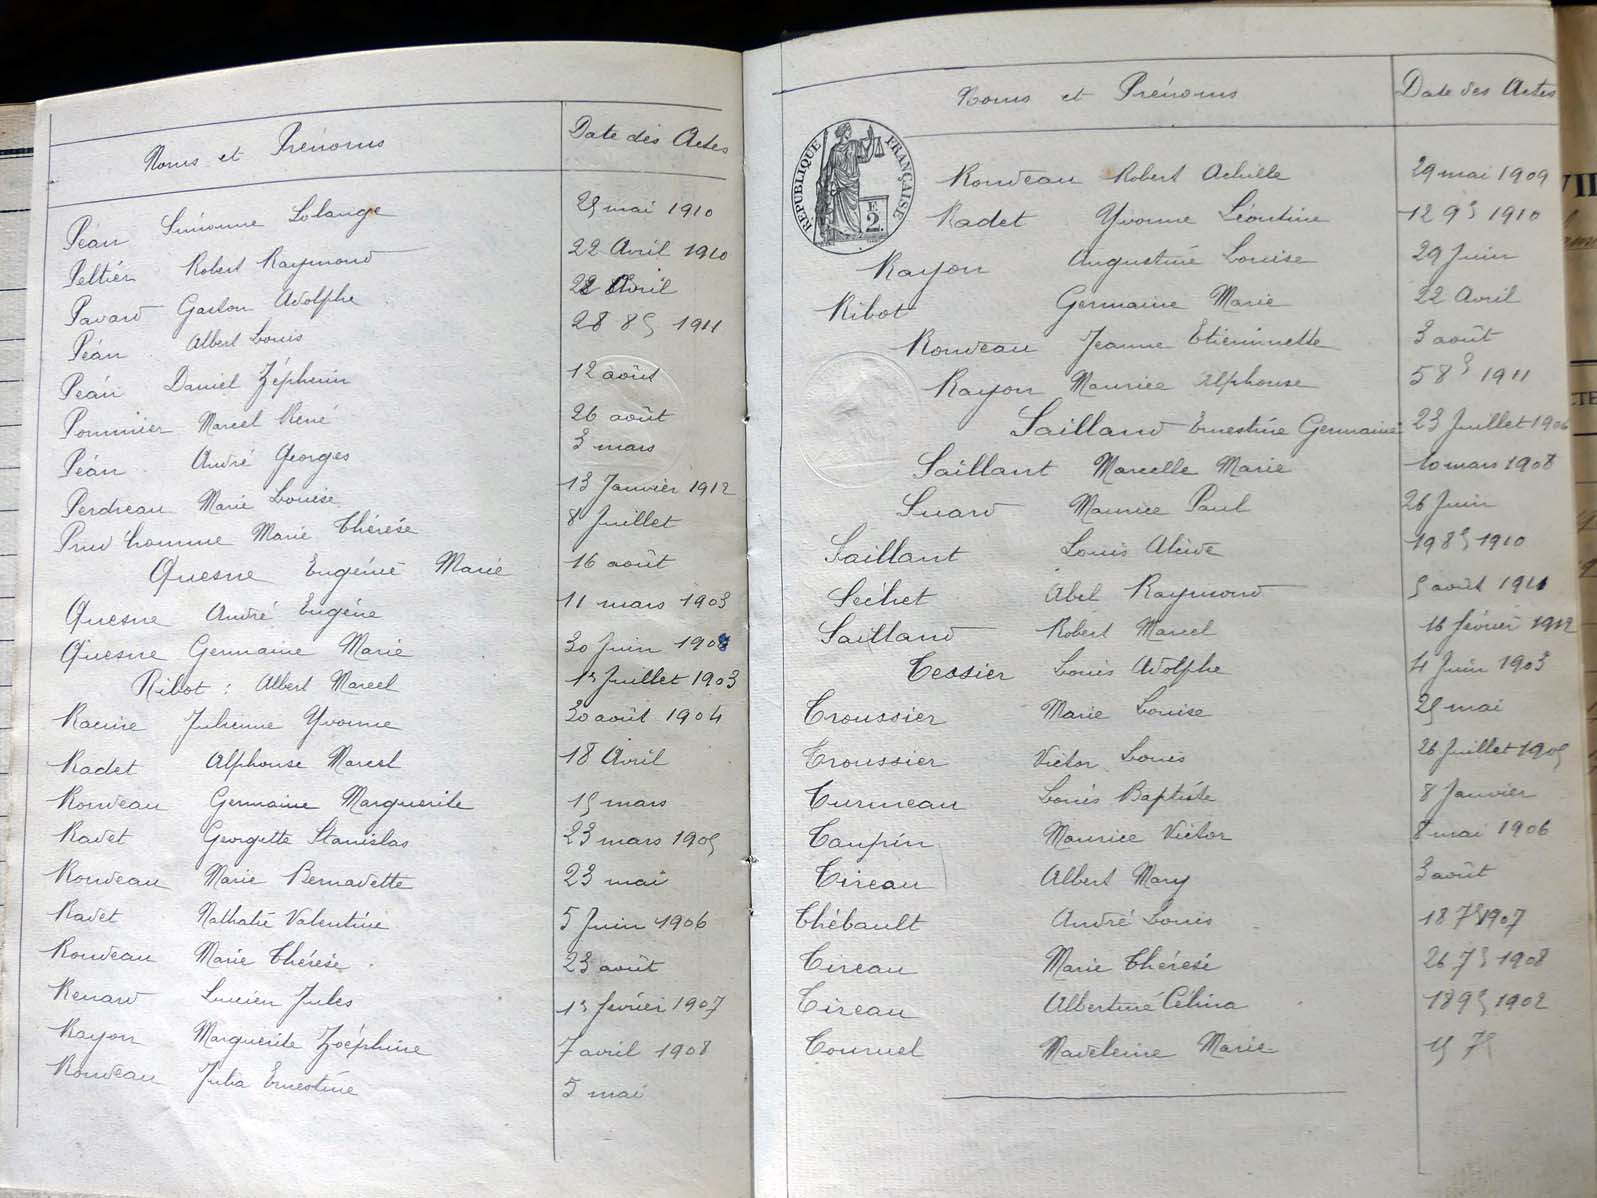 Noms et Prénoms Date des Actes
Péan Simonne Solange 25 mai 1910
Peltier Robert Raymond 22 Avril 1910
Pavard Gaston Adolphe 22 Avril
Péan Albert Louis 28 8bre 1911
Péan Daniel Zéphirin 12 août
Pommier Marcel René 26 août
Péan André Georges 3 mars
Perdreau Marie Louise 13 Janvier 1912
Prud'homme Marie Thérèse 8 Juillet
Quesne Eugénie Marie 16 août
Quesne André Eugène 11 mars 1903
Quesne Germaine Marie 30 Juin 1908
Ribot : Albert Marcel 1r Juillet 1903
Racine Julienne Yvonne 30 août 1904
Radet Alphonse Marcel 18 Avril
Rondeau Germaine Marguerite 15 mars
Radet Georgette Stanislas 23 mars 1905
Rondeau Marie Bernadette 23 mai
Radet Nathalie Valentine 5 Juin 1906
Rondeau Marie Thérèse 23 août
Renard Lucien Jules 1r février 1907
Rayon Marguerite Zoéphine 7 avril 1908
Rondeau Julia Ernestine 5 mai
Noms et Prénoms Date des Actes
RÉPUBLIQUE FRANÇAISE
E
2.
Rondeau Robert Achille 29 mai 1909
Radet Yvonne Léontine 12 9bre 1910
Rayon Augustine Louise 29 Juin
Ribot Germaine Marie 22 Avril
Rondeau Jeanne Etiennette 3 août
Rayon Maurice Alphonse 5 8bre 1911
Ailland Ernestine Germaine 23 Juillet 1906
Saillant Marcelle Marie 10 mars 1908
Suard Maurice Paul 26 Juin
Saillant Louis Alcide 19 8bre 1910
Séchet Abel Raymond 5 août 1911
Sailland Robert Marcel 16 février 1912
Tessier Louis Adolphe 4 Juin 1903
Troussier Marie Louise 25 mai
Troussier Victor Louis 26 Juillet 1905
Turmeau Louis Baptiste 8 Janvier
Taupin Maurice Victor 8 mai 1906
Tireau Albert Mary 3 août
Thébault André Louis 18 7bre 1907
Tireau Marie Thérèse 26 7bre 1908
Tireau Albertine Célina 18 9bre 1902
Tournel Madeleine Marie 15 7bre